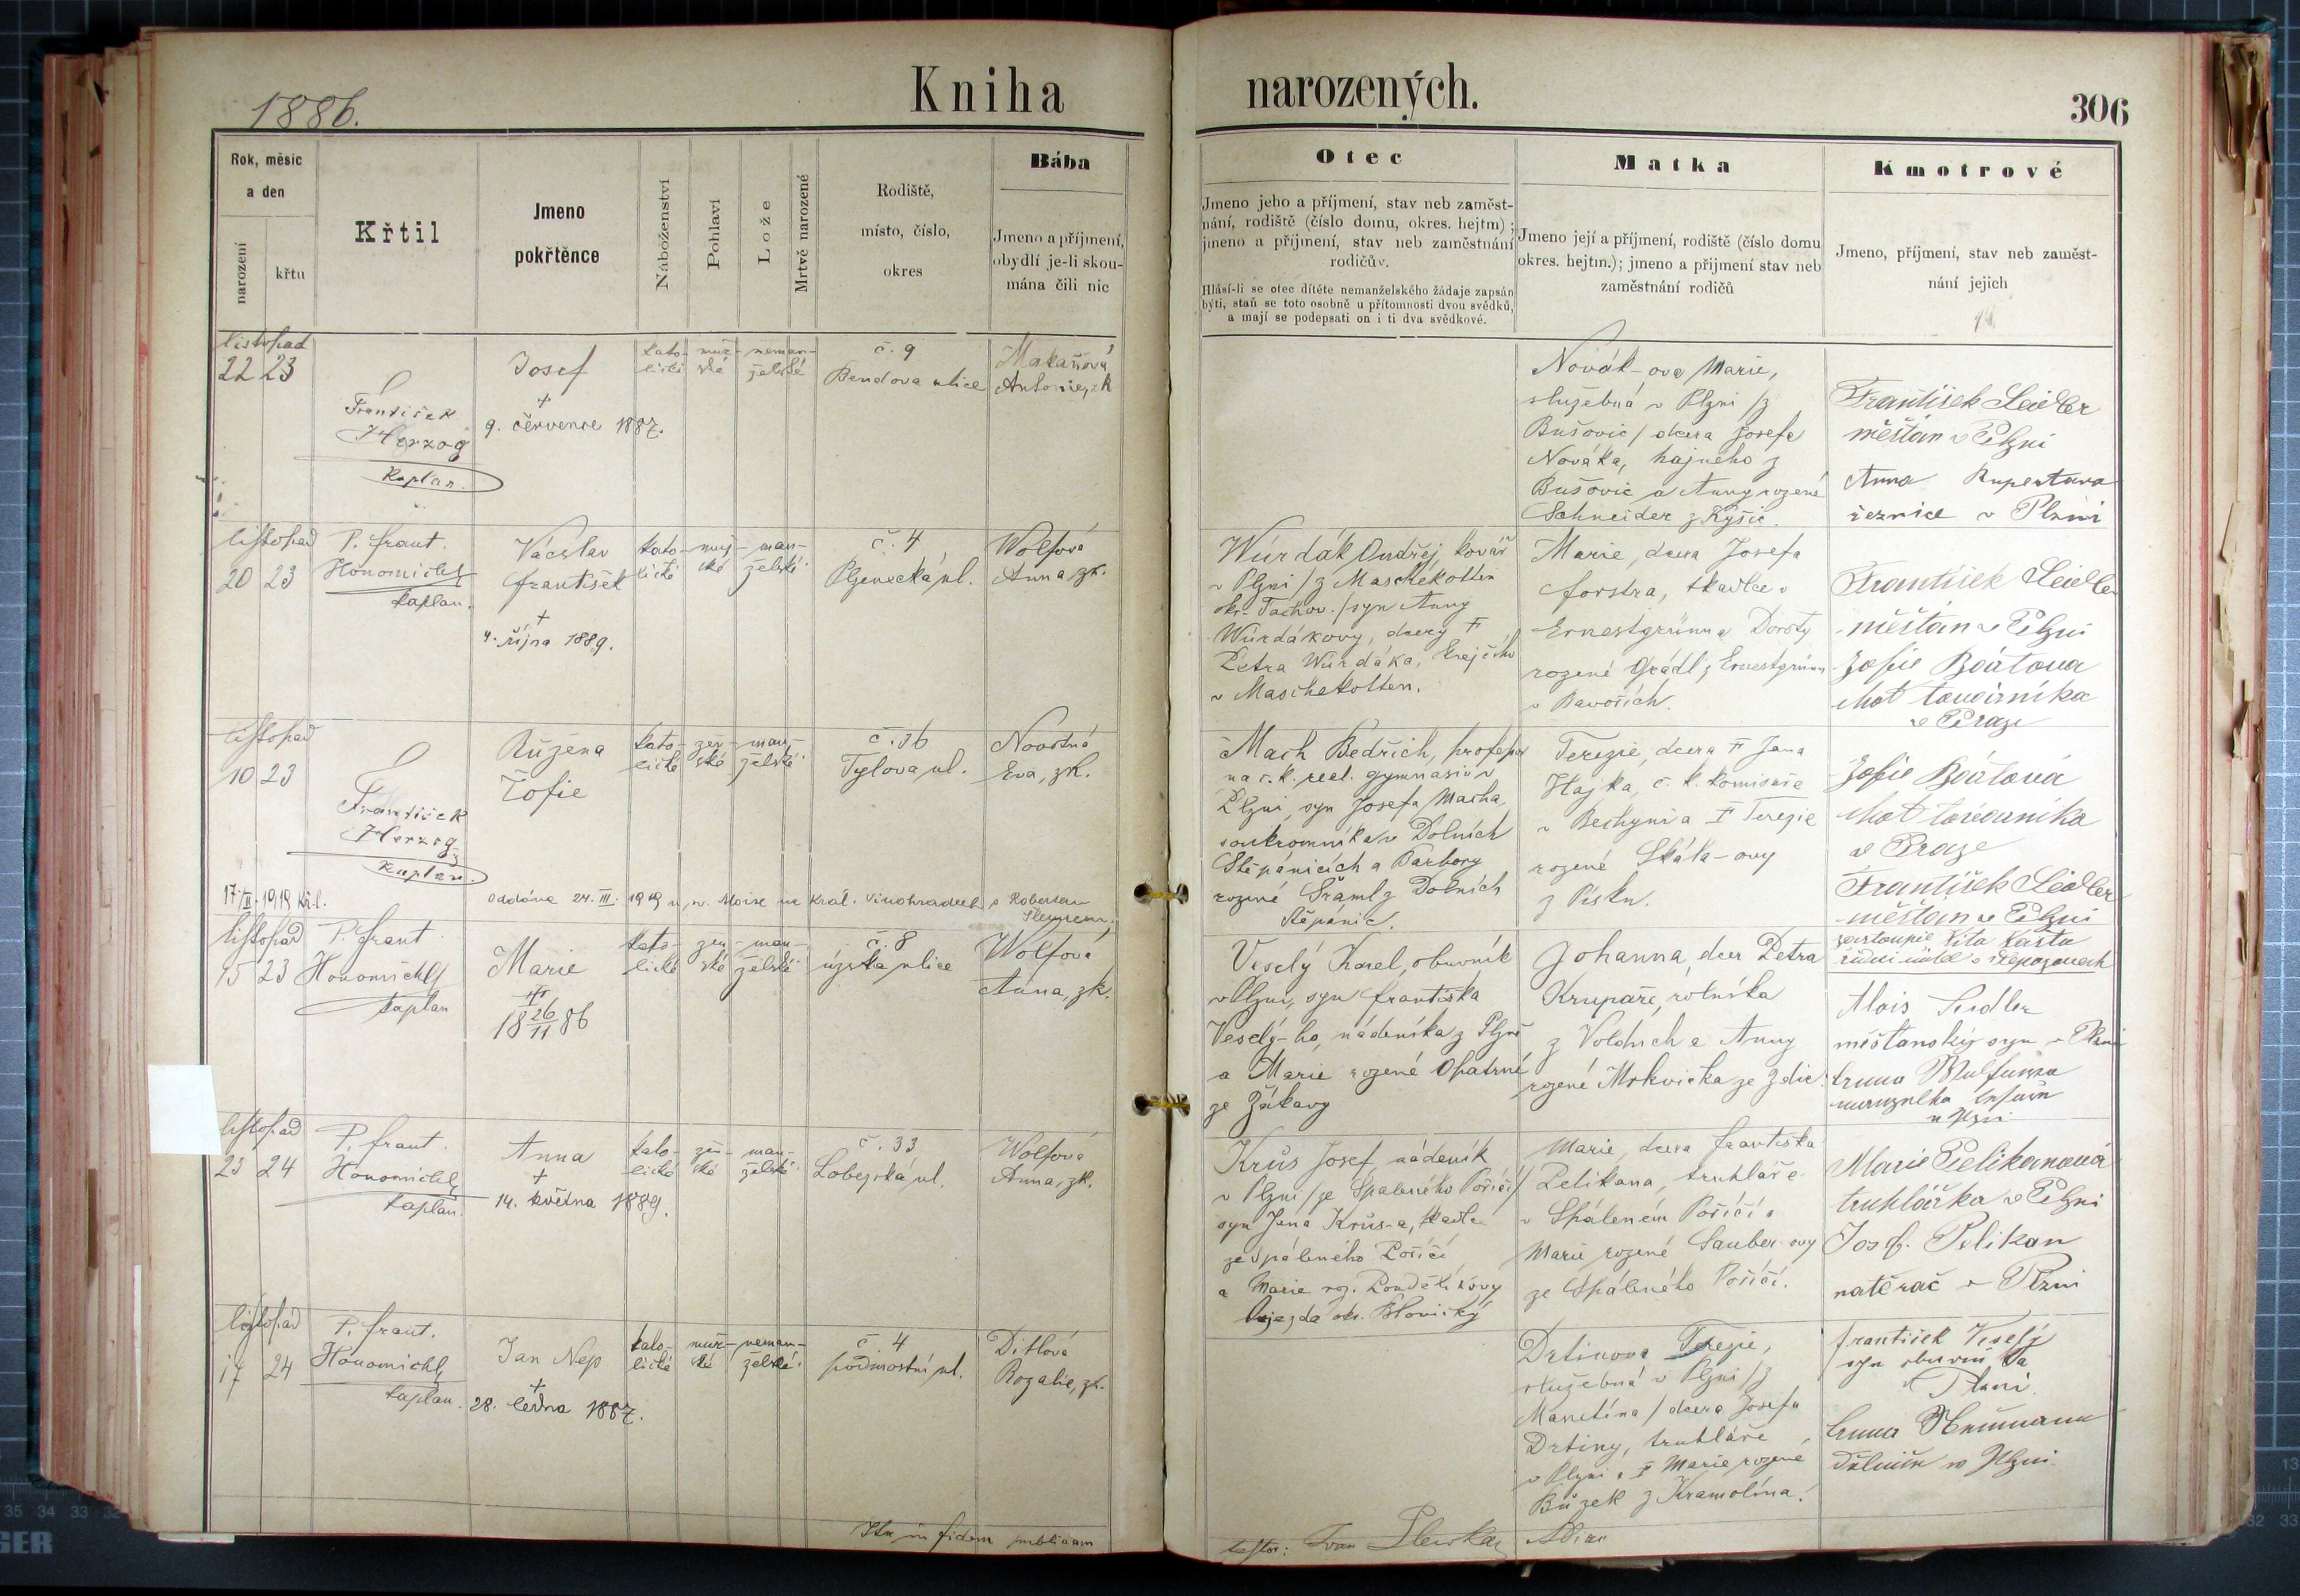 1886.
Kniha
narozených.
306
Rok, měsíc
a den
narození
křtu
Křtil
Jmeno
pokřtěnce
Náboženství
Pohlaví
Lože
Mrtvě narozené
Rodiště,
místo, číslo,
okres
Bába
Jmeno a příjmení,
obydlí je-li skou-
mána čili nic
Otec
Jmeno jeho a příjmení, stav neb zaměst-
nání, rodiště (číslo domu, okres. hejtm) ;
jmeno a příjmení, stav neb zaměstnání
rodičův.
Hlásí-li se otec dítěte nemanželského žádaje zapsán
býti, staň se toto osobně u přítomnosti dvou svědků,
a mají se podepsati on i ti dva svědkové.
Matka
Jmeno její a příjmení, rodiště (číslo domu
okres. hejtm.); jmeno a přijmení stav neb
zaměstnání rodičů
Kmotrové
Jmeno, příjmení, stav neb zaměst-
nání jejich
listopad
22 23
František
Herzog
kaplan.
Josef
+
9. července 1887.
kato-
lické
muž-
ské
neman-
želské
č. 9
Bendova ulice
Makařová
Antonie, zk
Novák-ova Marie,
služebná v Plzni /z
Bušovic/ dcera Josefa
Nováka, hajného z
Bušovic a Anny rozené
Schneider z Kyšic.
František Seidler
měšťan v Plzni
Anna Rupertova
řeznice v Plzni
listopad
20 23
P. Frant.
Honomichl
kaplan.
Václav
František
+
4. října 1889.
kato-
lické
muž-
ské
man-
želské
č. 4
Plzenecká ul.
Wolfová
Anna zk.
Würdák Ondřej, kovář
v Plzni /z Maschekotten
okr. Tachov./ syn Anny
Würdákovy, dcery †
Petra Würdáka, krejčího
v Maschekotten.
Marie, dcera Josefa
Forstra, tkadlce v
Ernestgrünn a Doroty
rozené Grádl z Ernestgrünn
v Bavořích.
František Seidler
měšťan v Plzni
Žofie Bártova
choť továrníka
v Praze
listopad
10 23
František
Herzog
kaplan.
Růžena
Žofie
kato-
lické
žen-
ské
man-
želské
č. 36
Tylova ul.
Novotná
Eva, zk.
Mach Bedřich, professor
na c. k. reel. gymnasiu v
Plzni, syn Josefa Macha,
soukromníka v Dolních
Štěpánicích a Barbory
rozené Šraml z Dolních
Štěpánic.
Terezie, dcera † Jana
Hájka, c. k. komisaře
v Bechyni a † Terezie
rozené Skála-ovy
z Písku.
Žofie Bártová
choť továrníka
v Praze
František Seidler
měšťan v Plzni
17/II. 1919 kř. l.
oddána 24. III. 1919 u na Král. Vinohradech s Robertem
listopad
15 23
P. Frant
Honomichl
kaplan
Marie
18 26/11 86
kato-
lické
žen-
ské
man-
želské
č. 8
úzká ulice
Wolfová
Anna, zk.
Veselý Karel, obuvník
v Plzni, syn Františka
Veselý-ho, nádeníka z Plzně
a Marie rozené Opatrné
ze Žákavy
Johanna, dcer Petra
Krupaře, rolníka
z Volduch a Anny
rozené Mrkvička ze Zdic.
Alois Seidler
měšťanský syn v Plzni
listopad
23 24
P. Frant.
Honomichl
kaplan.
Anna
+
14. května 1889.
kato-
lické
žen-
ské
man-
želské
č. 33
Lobezská ul.
Wolfová
Anna, zk.
Krůs Josef, nádeník
v Plzni /ze Spáleného Poříčí/
syn Jana Krůs-a, tkadlce
ze Spáleného Poříčí
a Marie roz. Pondělíkovy
Oujezda okr. Blovický
Marie, dcera Františka
Pelikana, truhláře
v Spáleném Poříčí a
Marie rozené Sauber-ovy
ze Spáleného Poříčí.
Marie Pelikanová
truhlářka v Plzni
Josef. Pelikan
natěrač v Plzni
listopad
17 24
P. Frant.
Honomichl
kaplan.
Jan Nep
+
28. ledna 1887.
kato-
lické
muž-
ské
neman-
želské
č. 4
podmostní ul.
Ditlová
Rozalie, zk.
Drtinova Terezie,
služebná v Plzni /z
Manetína/ dcera Josefa
Drtiny, truhláře
v Plzni a † Marie rozené
Bůzek z Kramolína.
František Veselý
syn obuvníka
v Plzni.
v Plzni.
Ita in fidem publicam
testor: Ivan Plevka